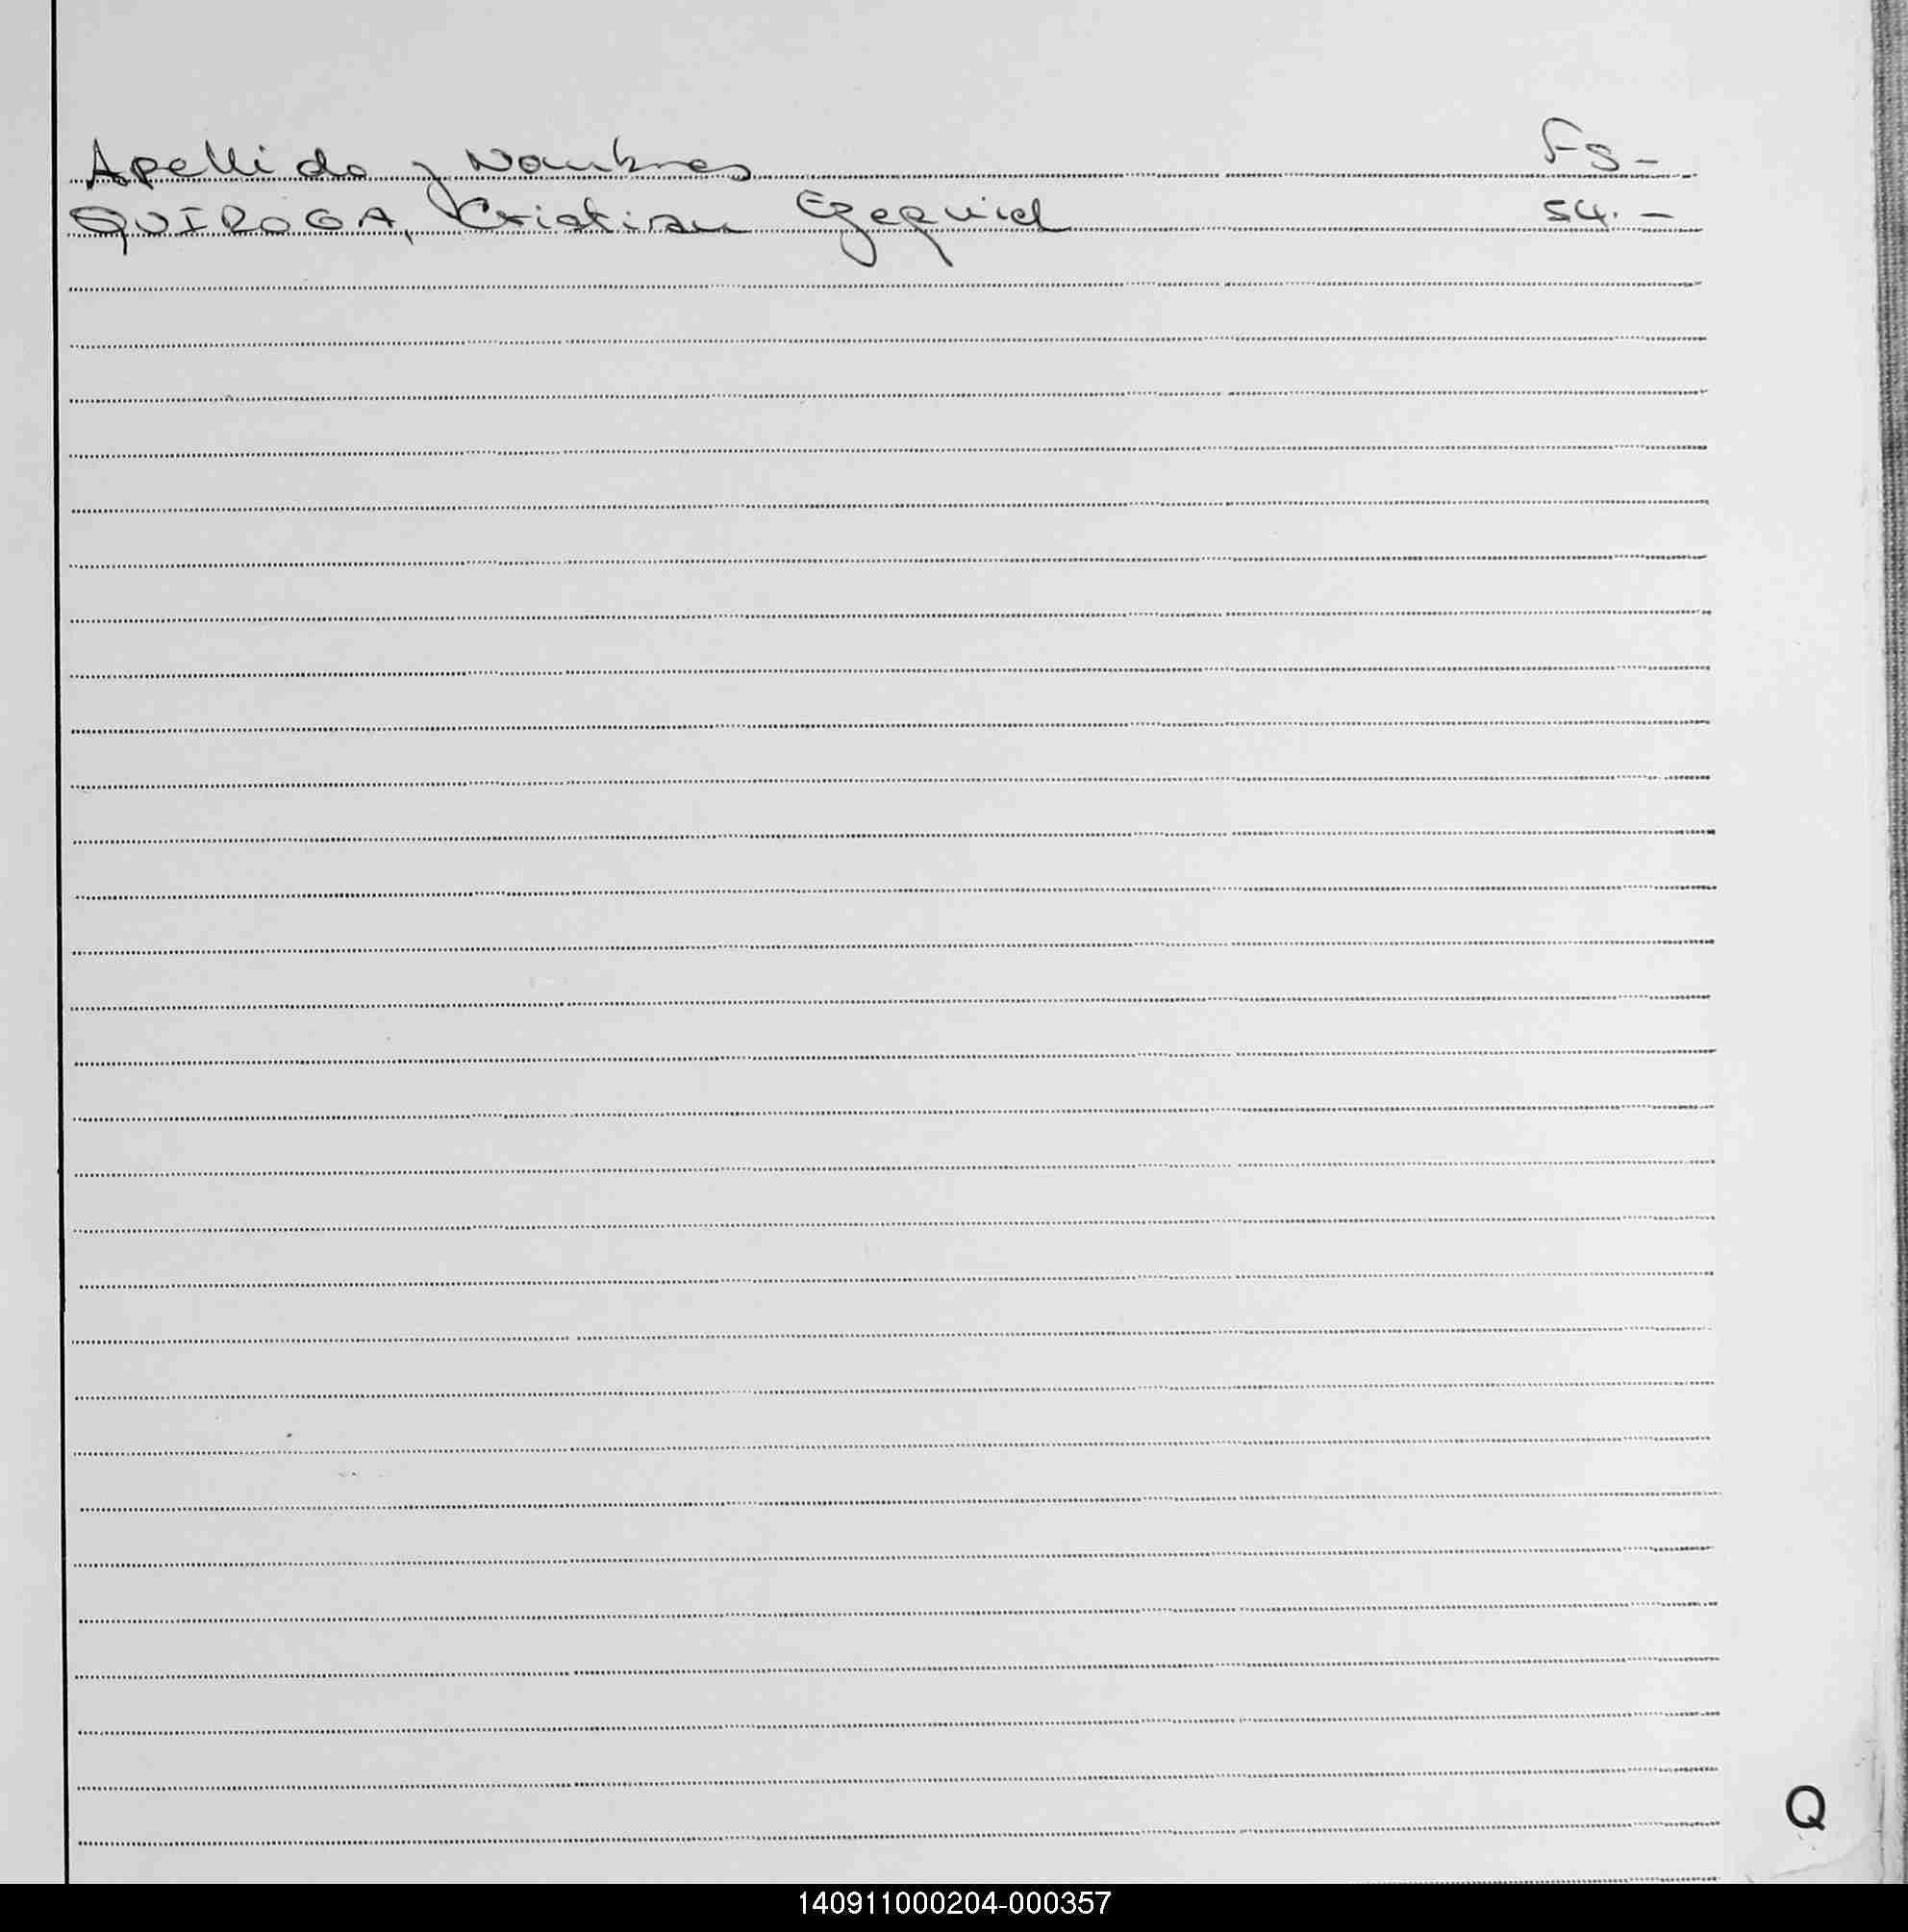 Apellido y Nombres Fs-
QUIROGA, Cristian Ezequiel 54.-
Q
140911000204-000357